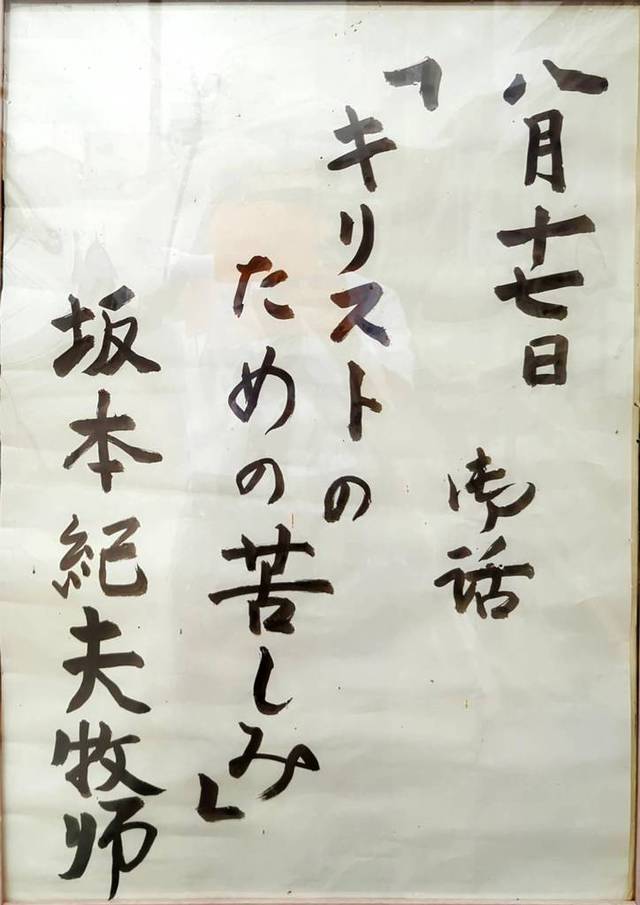 八月十七日
御話
「キリストの
ための苦しみ」
坂本紀夫牧師